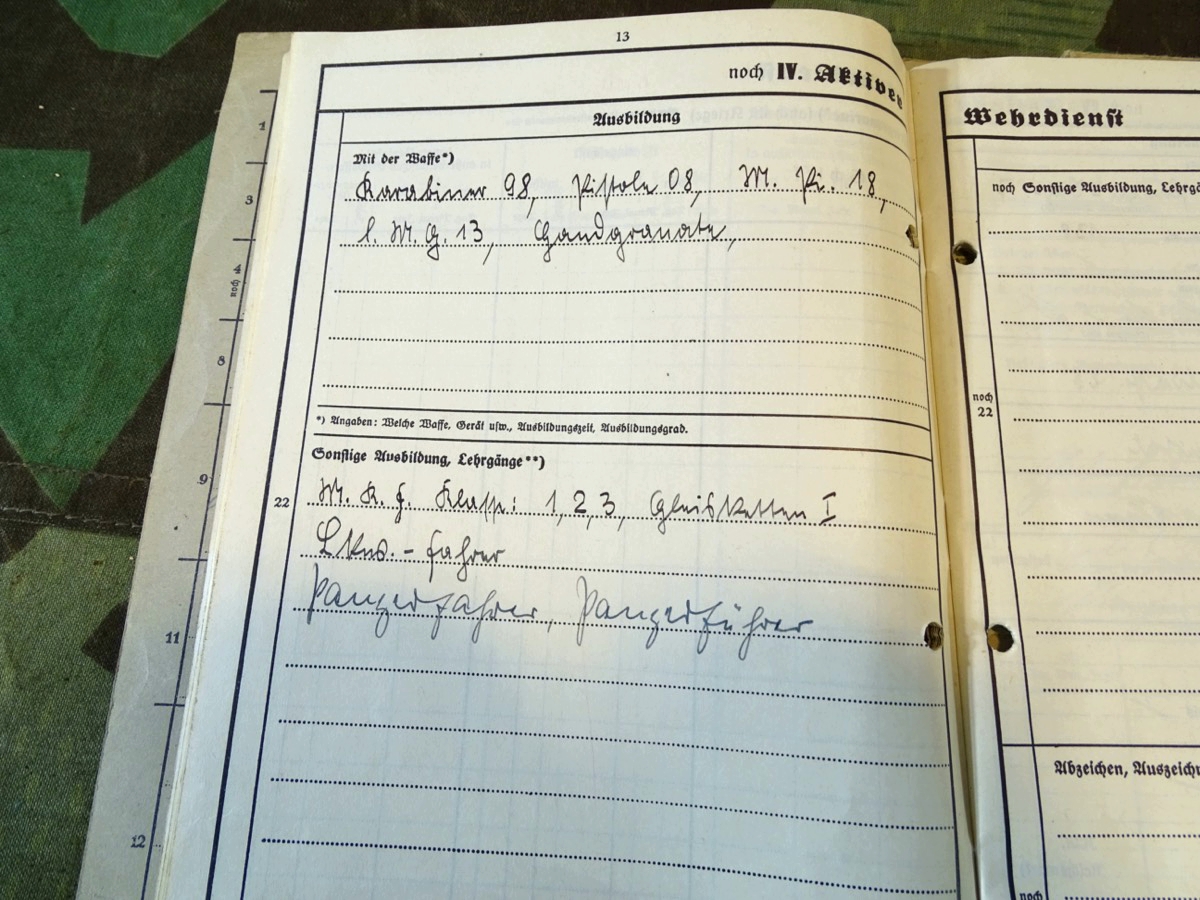 13
noch IV. Aktiver
Ausbildung
Mit der Waffe*)
Karabiner 98, Pistole 08, M. Pi. 18,
l. M. G. 13, Handgranate,
*) Angaben: Welche Waffe, Gerät usw., Ausbildungszeit, Ausbildungsgrad.
Sonstige Ausbildung, Lehrgänge**)
22
W. K. f. Klasse: 1, 2, 3, Gleisketten I
Lkw. - fahrer
Panzerfahrer, Panzerführer
Wehrdienst
noch Sonstige Ausbildung, Lehrgä
noch
22
Abzeichen, Auszeichn
noch
1
3
noch 4
8
9
11
12